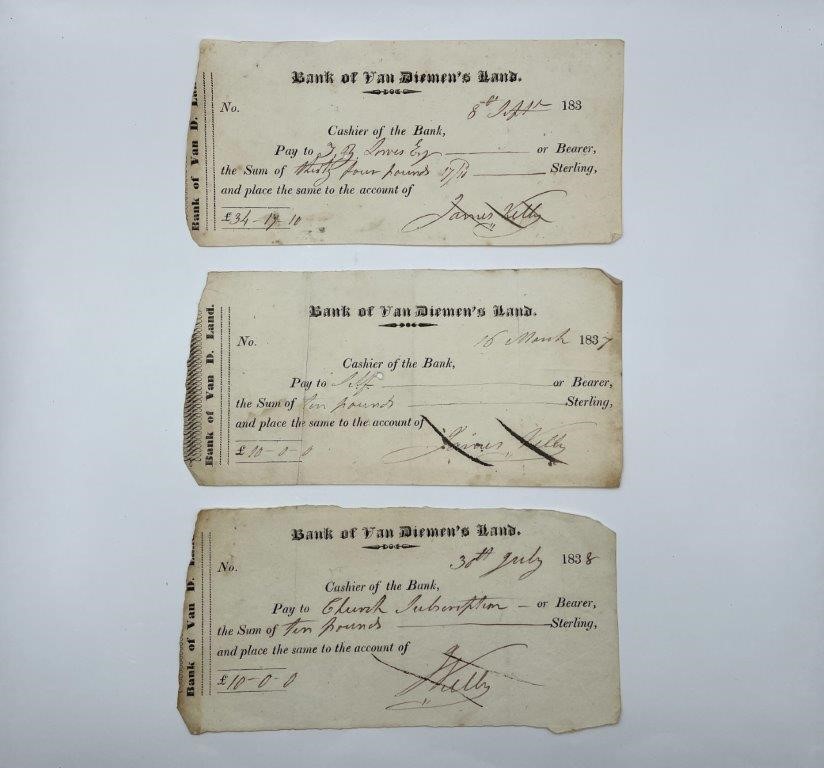 Bank of Van Diemen's Land.
No.
8th Sept 183
Cashier of the Bank,
Pay to Esq or Bearer,
the Sum of thirty four pounds 17/10 Sterling,
and place the same to the account of
£34-17-10
James Kelly
Bank of Van D. Lan
Bank of Van Diemen's Land.
No.
16 March 1837
Cashier of the Bank,
Pay to Self or Bearer,
the Sum of ten pounds Sterling,
and place the same to the account of
£10-0-0
James Kelly
Bank of Van D. Land.
Bank of Van Diemen's Land.
No.
30th July 1838
Cashier of the Bank,
Pay to Church Subscription – or Bearer,
the Sum of ten pounds Sterling,
and place the same to the account of
£10-0-0
J Kelly
Bank of Van D. Lan